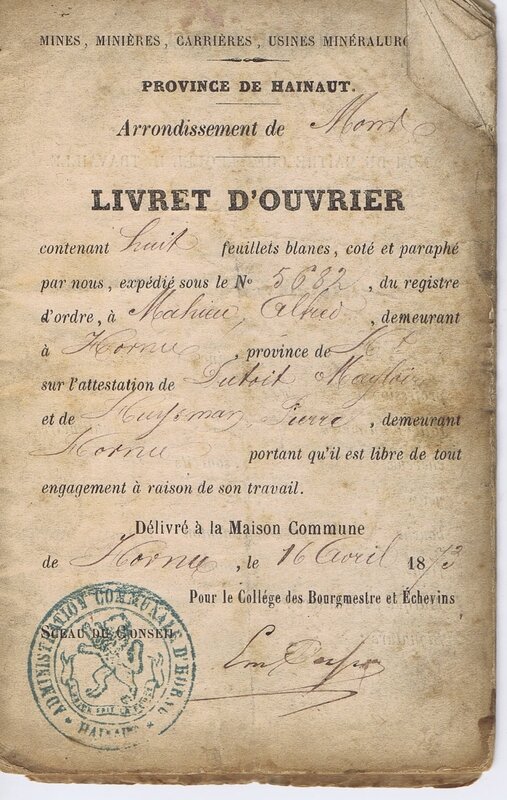 MINES, MINIÈRES, CARRIÈRES, USINES MINÉRALURG
PROVINCE DE HAINAUT.
Arrondissement de Mons
LIVRET D'OUVRIER
contenant huit feuillets blancs, coté et paraphé
par nous, expédié sous le No 5682, du registre
d'ordre, à Mahieu, Alfred, demeurant
à Hornu, province de Ht
sur l'attestation de Dutoit Magloire
et de Huysman, Pierre, demeurant
Hornu portant qu'il est libre de tout
engagement à raison de son travail.
Délivré à la Maison Commune
de Hornu, le 16 Avril 1873
Pour le Collége des Bourgmestre et Échevins
SCEAU DU CONSEIL
ADMINISTRATION COMMUNALE D'HORNU
HAINAUT